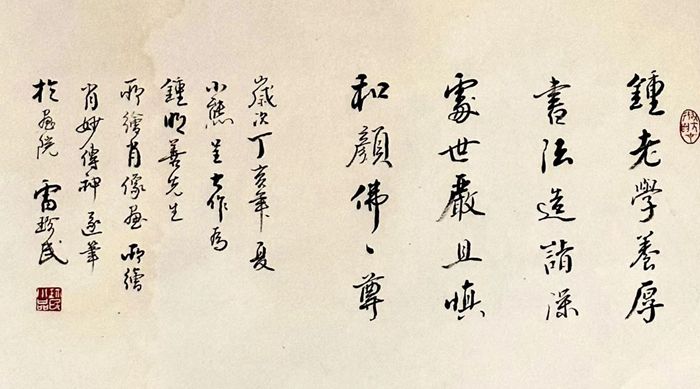 鍾老學養厚
書法造詣深
處世嚴且慎
和顏佛、尊
歲次丁亥年夏
小熊呈大作為
鍾明善先生
所繪肖像畫所繪
肖妙傳神遂筆
於畫院 雷珍民